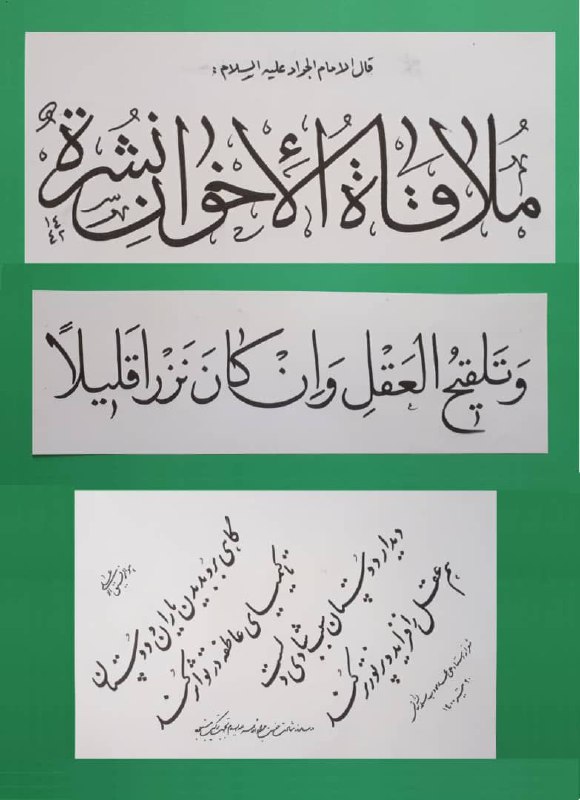 قال الامام الجواد علیه السلام:
مُلاقاةُ الأِخوانِ نُشرَةٌ
۱۴۴۲
وَتَلقیحُ العَقلِ وَاِنْ کانَ نَزْراً قَلیلاً
گاهی برو بدیدن یاران و دوستان
تا کیمیای عاطفه در تو اثر کند
دیدار دوستان سبب شادی دلست
هم عقل را فزاید و پر نورتر کند